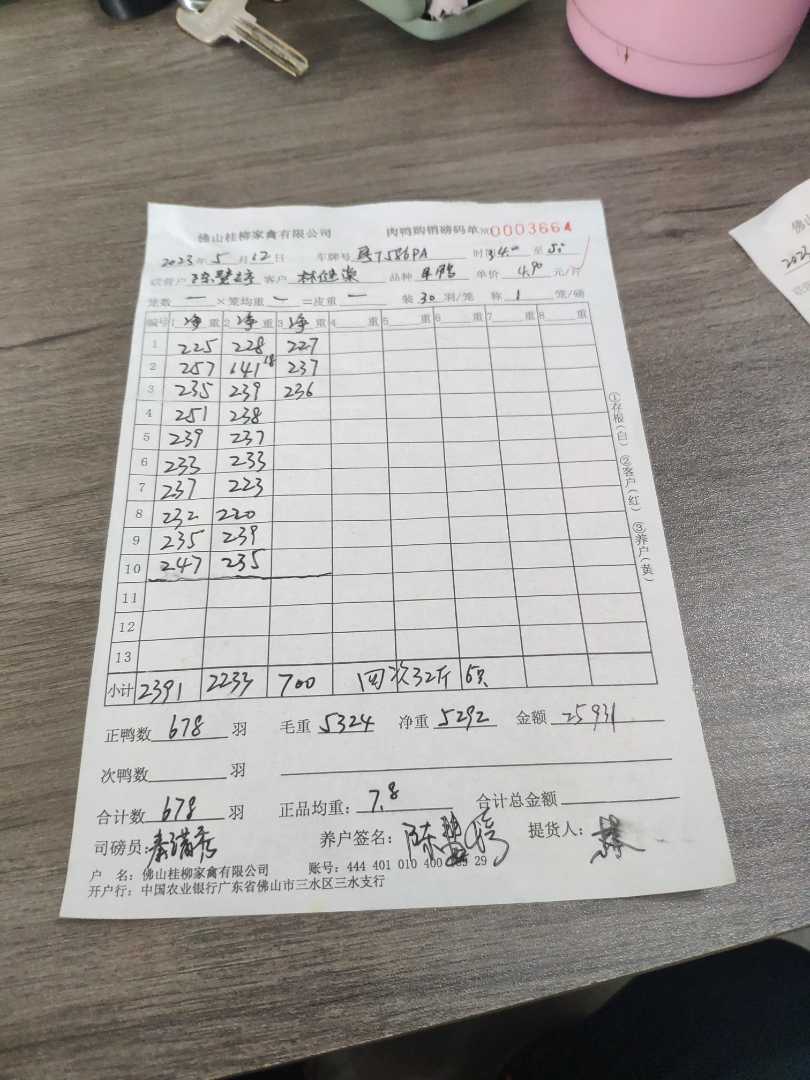 佛山桂柳家禽有限公司 肉鸭购销磅码单 №000366
2023年5月12日 车牌号 7586PA 时 至
客户 林 品种 单价 4.90 元/斤
笼数 一 ×笼均重 一 =皮重 一 装 30 羽/笼 称 1 笼/磅
编号 1 净 重 2 净 重 3 净 重 4 重 5 重 6 重 7 重 8 重
1 225 228 227
2 257 141 18 237
3 235 239 236
4 251 238
5 239 237
6 233 233
7 237 223
8 232 220
9 235 239
10 247 235
11
12
13
小计 2391 2233 700 次32斤 6只
正鸭数 678 羽 毛重 5324 净重 5292 金额 25931
次鸭数 羽
合计数 678 羽 正品均重: 7.8 合计总金额
司磅员: 养户签名: 陈 提货人: 林
户 名: 佛山桂柳家禽有限公司 账号: 444 401 010 400 29
开户行: 中国农业银行广东省佛山市三水区三水支行
①存根(白) ②客户(红) ③养户(黄)
佛山
2023